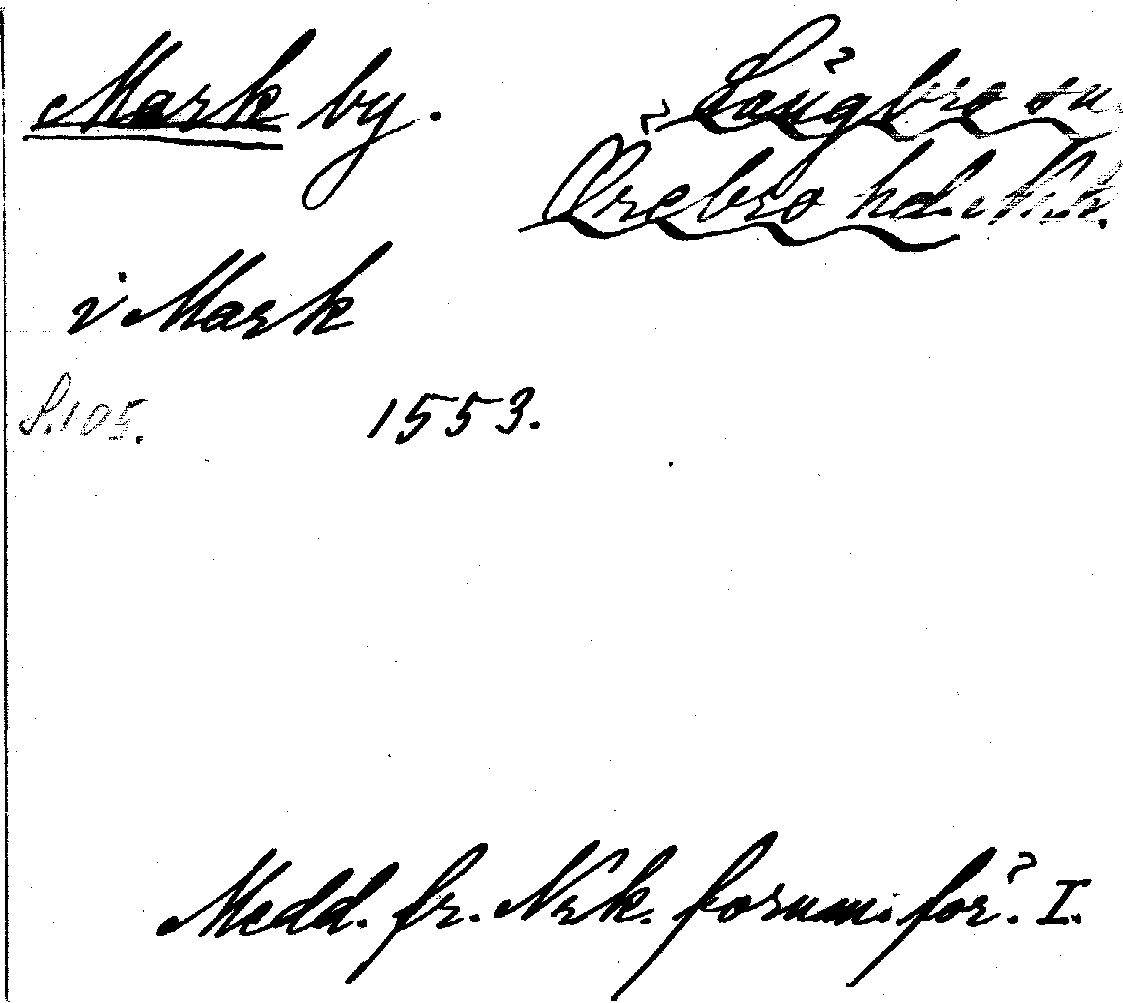 Mark by. Längbro sn
Örebro hd.
i Mark
S. 105. 1553.
Medd. fr. Nrk. fornm. för. I.